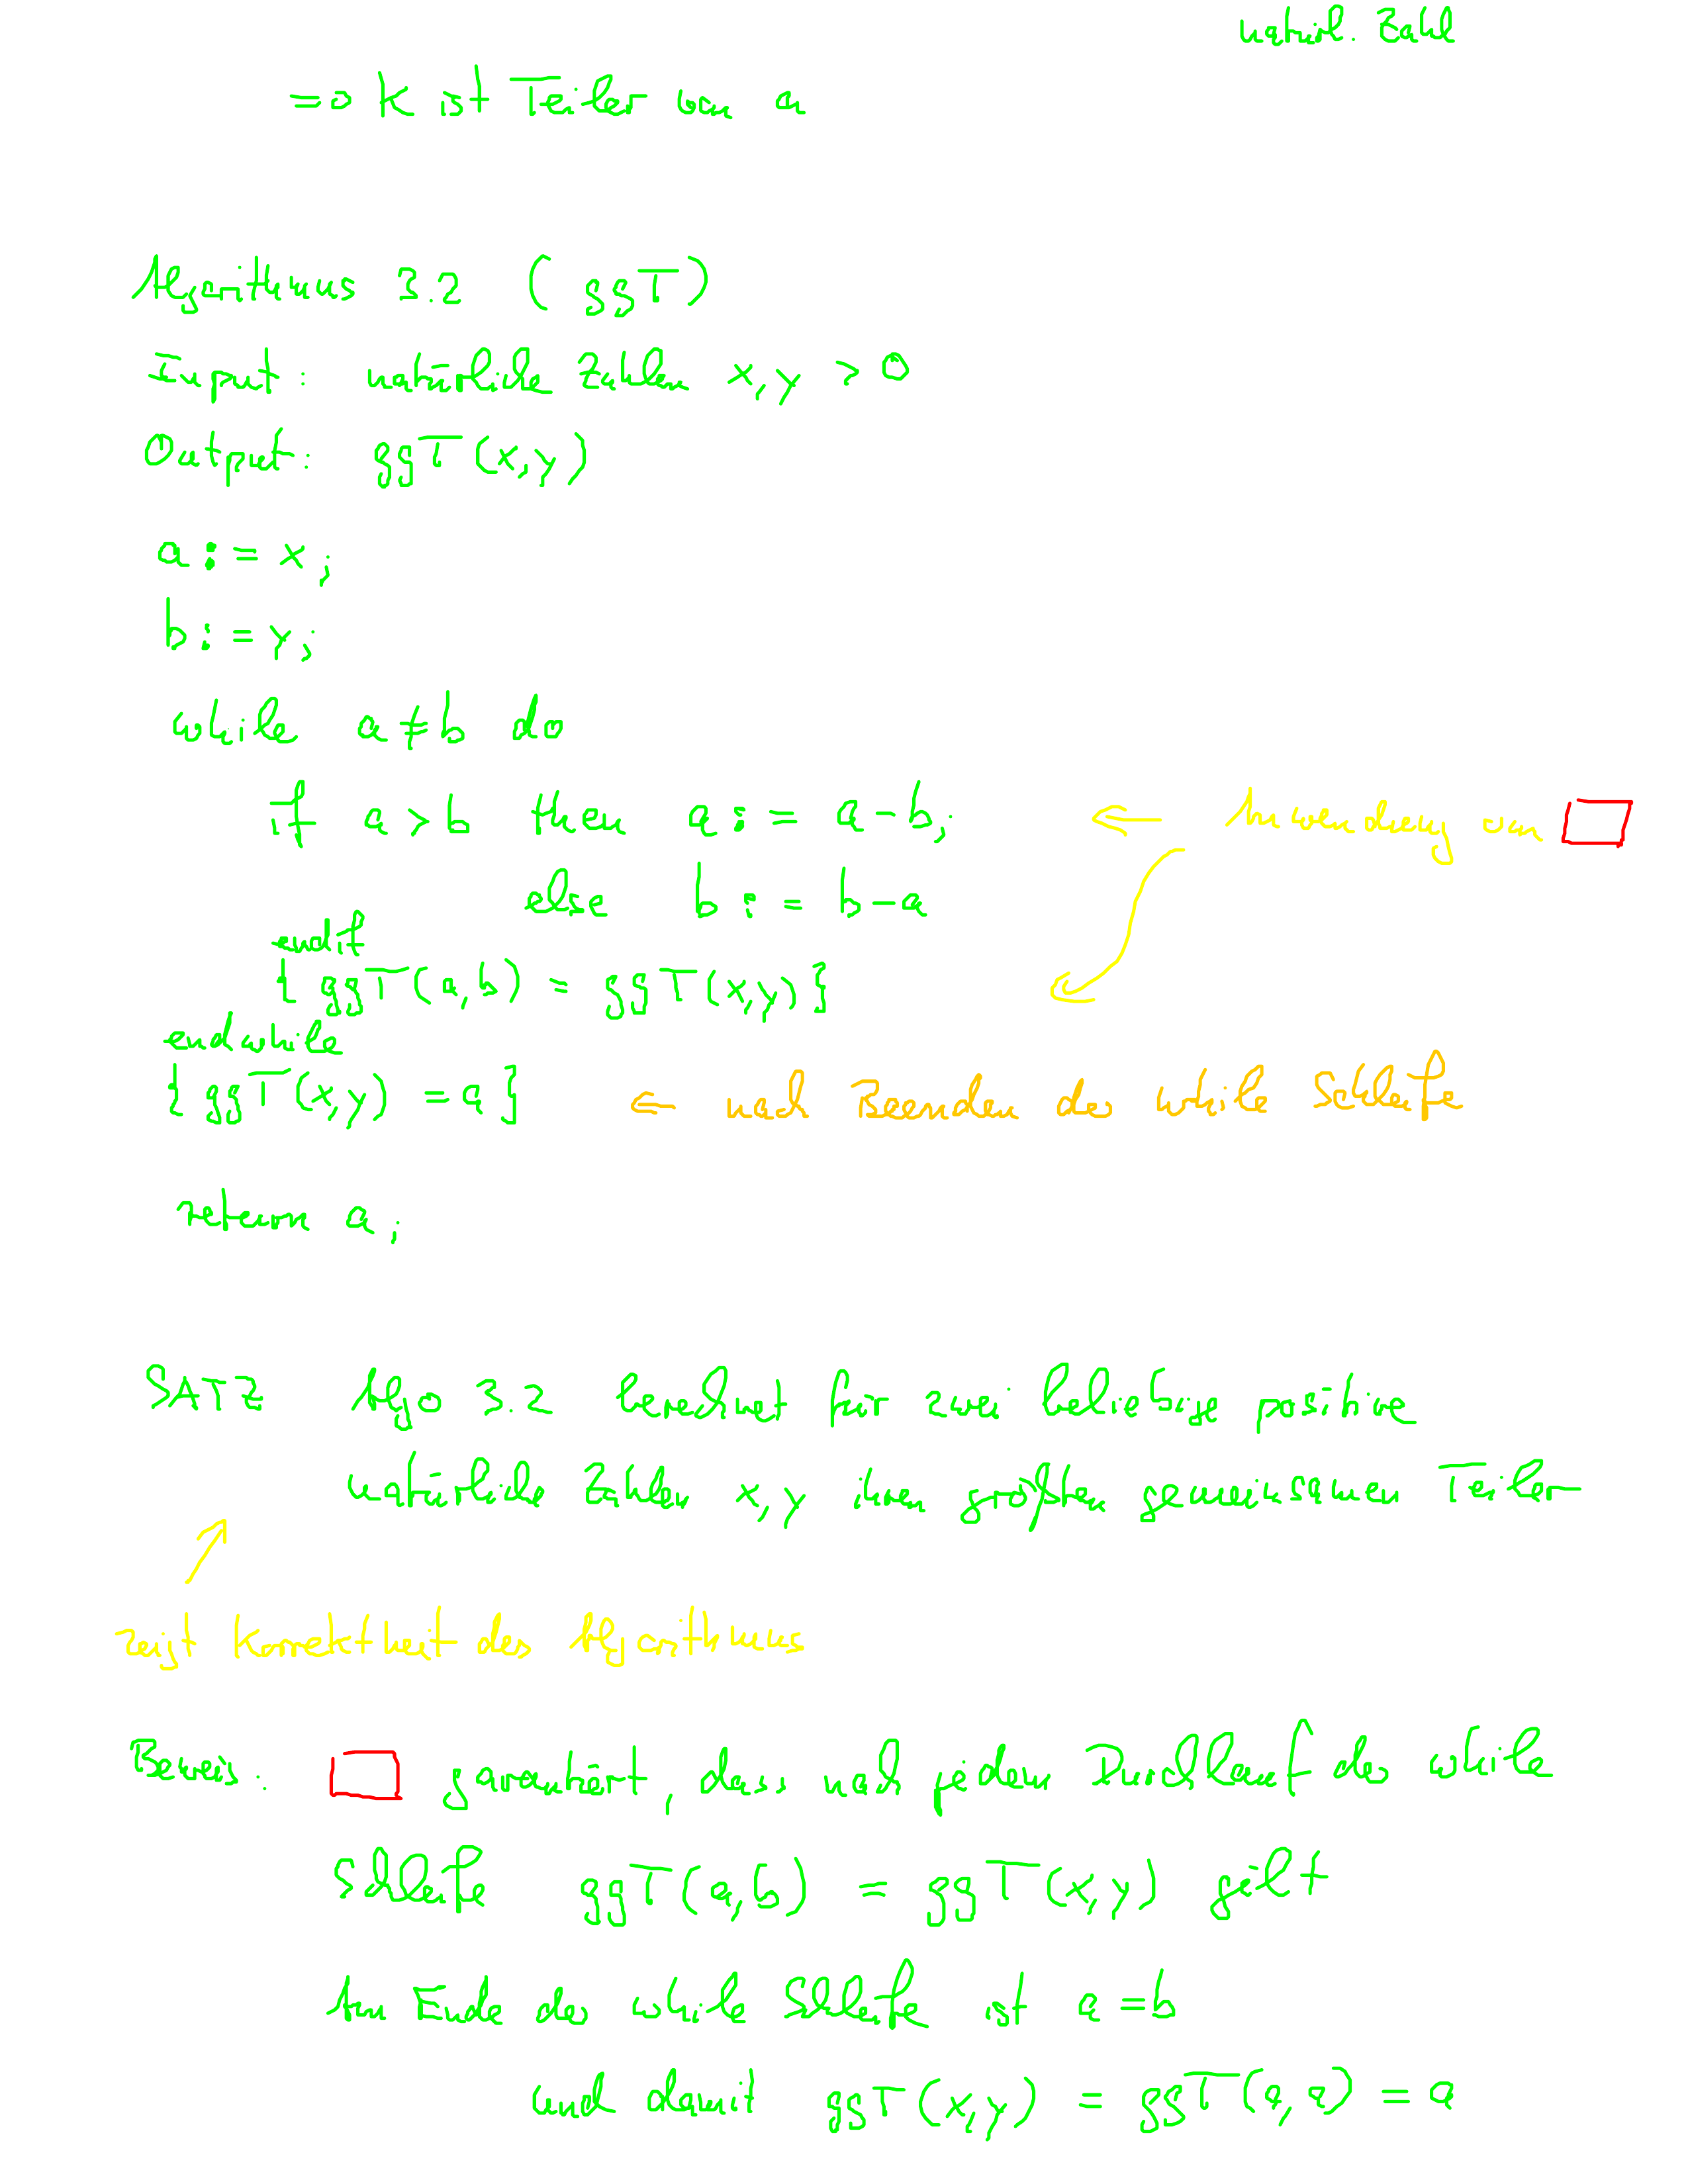 natürl. Zahl
=> k ist Teiler von a
Algorithmus 3.2 ( ggT)
Input: natürliche Zahlen x,y > 0
Output: ggT(x,y)
a := x;
b := y;
while a≠b do
if a>b then a := a-b; <= Anwendung von
else b := b-a
endif
{ ggT(a,b) = ggT(x,y)}
endwhile
{ ggT(x,y) = a} <= nach Beenden der while Schleife
return a;
SATZ Algo 3.2 berechnet für zwei beliebige positive
natürliche Zahlen x,y ihren größten gemeinsamen Teiler
zeigt Korrektheit des Algorithmus
Beweis: garantiert, dass nach jedem Durchlauf der while
Schleife ggT(a,b) = ggT(x,y) gilt
Am Ende der while Schleife ist a=b
und damit ggT(x,y) = ggT(a,a) = a